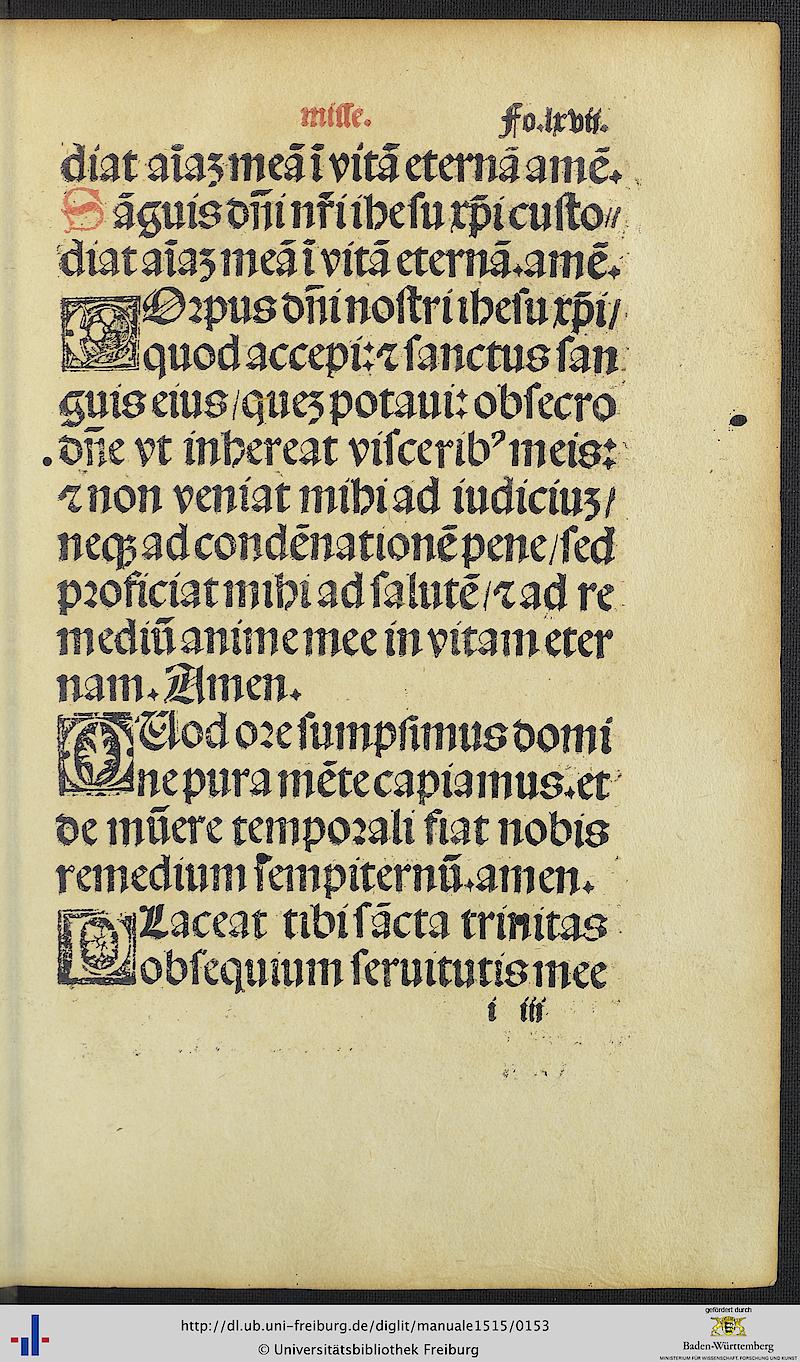 misse. Fo.lxvii.
diat aīaꝫ meā ī vitā eternā amē.
Sāguis dn̄i nr̄i ihesu xp̄i custo⸗
diat aīaꝫ meā ī vitā eternā.amē.
COrpus dn̄i nostri ihesu xp̄i/
quod accepi: ⁊ sanctus san
guis eius/queꝫ potaui: obsecro
dn̄e vt inhereat viscerib⁹ meis:
⁊ non veniat mihi ad iudiciuꝫ/
neqꝫ ad condēnationē pene/sed
proficiat mihi ad salutē/⁊ ad re
mediū anime mee in vitam eter
nam. Amen.
QUod ore sumpsimus domi
ne pura mēte capiamus.et
de mūere temporali fiat nobis
remedium sempiternū.amen.
PLaceat tibi sācta trinitas
obsequium seruitutis mee
i iii
http://dl.ub.uni-freiburg.de/diglit/manuale1515/0153
© Universitätsbibliothek Freiburg
gefördert durch
Baden-Württemberg
MINISTERIUM FÜR WISSENSCHAFT, FORSCHUNG UND KUNST